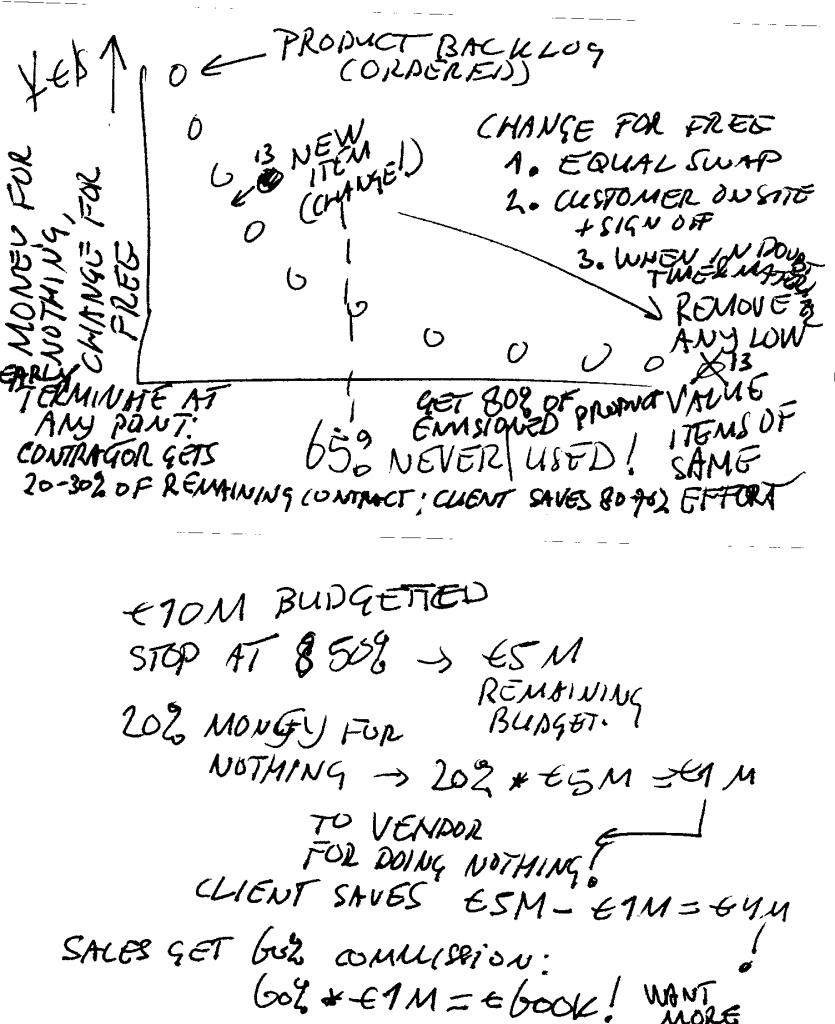 ¥€$
PRODUCT BACKLOG
(ORDERED)
MONEY FOR
NOTHING,
CHANGE FOR
FREE
13 NEW
ITEM
(CHANGE!)
CHANGE FOR FREE
1. EQUAL SWAP
2. CUSTOMER ONSITE
+ SIGN OFF
3. WHEN IN DOUBT
TIME & MATER
REMOVE
ANY LOW
13
VALUE
ITEMS OF
SAME
EFFORT
EARLY
TERMINATE AT
ANY POINT:
CONTRACTOR GETS
20-30% OF REMAINING CONTRACT; CLIENT SAVES 80-70%
GET 80% OF
ENVISIONED PRODUCT
65% NEVER USED!
€10M BUDGETTED
STOP AT 50% → €5M
REMAINING
BUDGET.
20% MONEY FOR
NOTHING → 20% * €5M = €1M
TO VENDOR
FOR DOING NOTHING!
CLIENT SAVES €5M - €1M = €4M!
SALES GET 60% COMMISSION:
60% * €1M = €600K! WANT
MORE